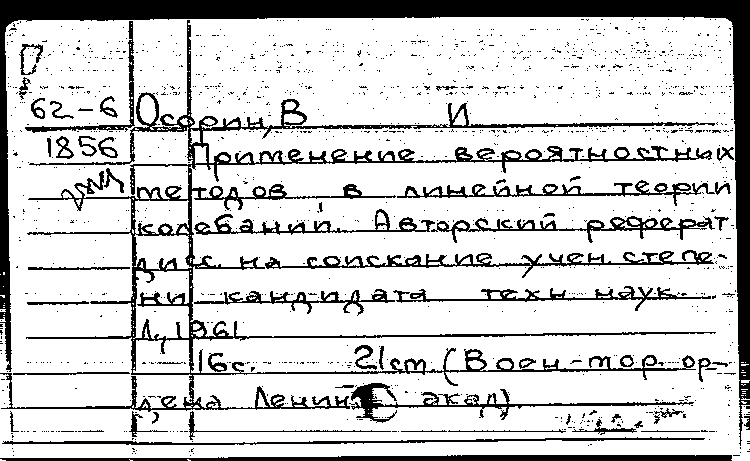 62-6 Осорин, В И
1856 Применение вероятностных
методов в линейной теории
колебаний. Авторский реферат
дисс. на соискание учен. степе-
ни кандидата техн. наук.
Л., 1961.
16 с. 21 см. (Воен-мор. ор-
дена Ленина акад)